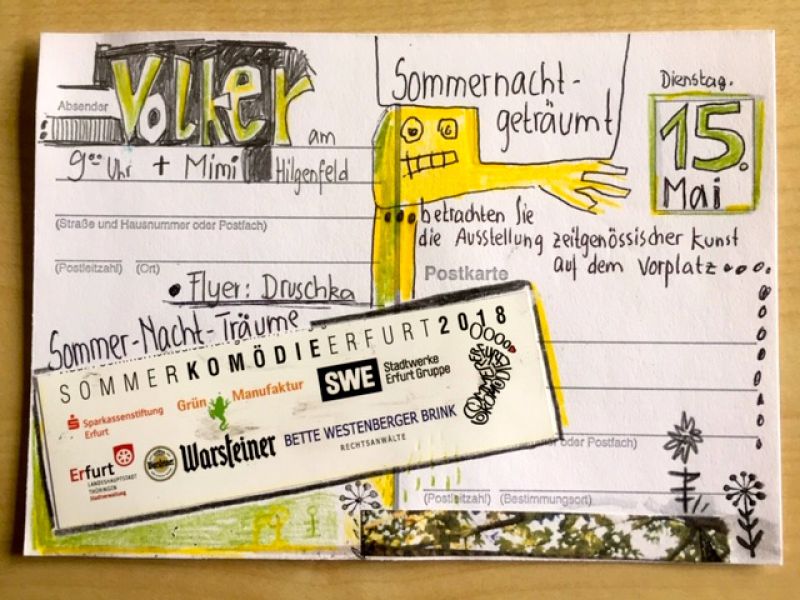 Absender
Volker
am
9°° Uhr + Mimi Hilgenfeld
(Straße und Hausnummer oder Postfach)
(Postleitzahl) (Ort)
• Flyer: Druschka
Sommer-Nacht-Träume
Sommernacht-
geträumt
Dienstag.
15.
Mai
betrachten Sie
die Ausstellung zeitgenössischer Kunst
auf dem Vorplatz
Postkarte
SOMMERKOMÖDIEERFURT2018
Sparkassenstiftung
Erfurt
Grün Manufaktur
SWE Stadtwerke
Erfurt Gruppe
Erfurt
LANDESHAUPTSTADT
THÜRINGEN
Stadtverwaltung
Warsteiner
BETTE WESTENBERGER BRINK
RECHTSANWÄLTE
oder Postfach)
(Postleitzahl) (Bestimmungsort)